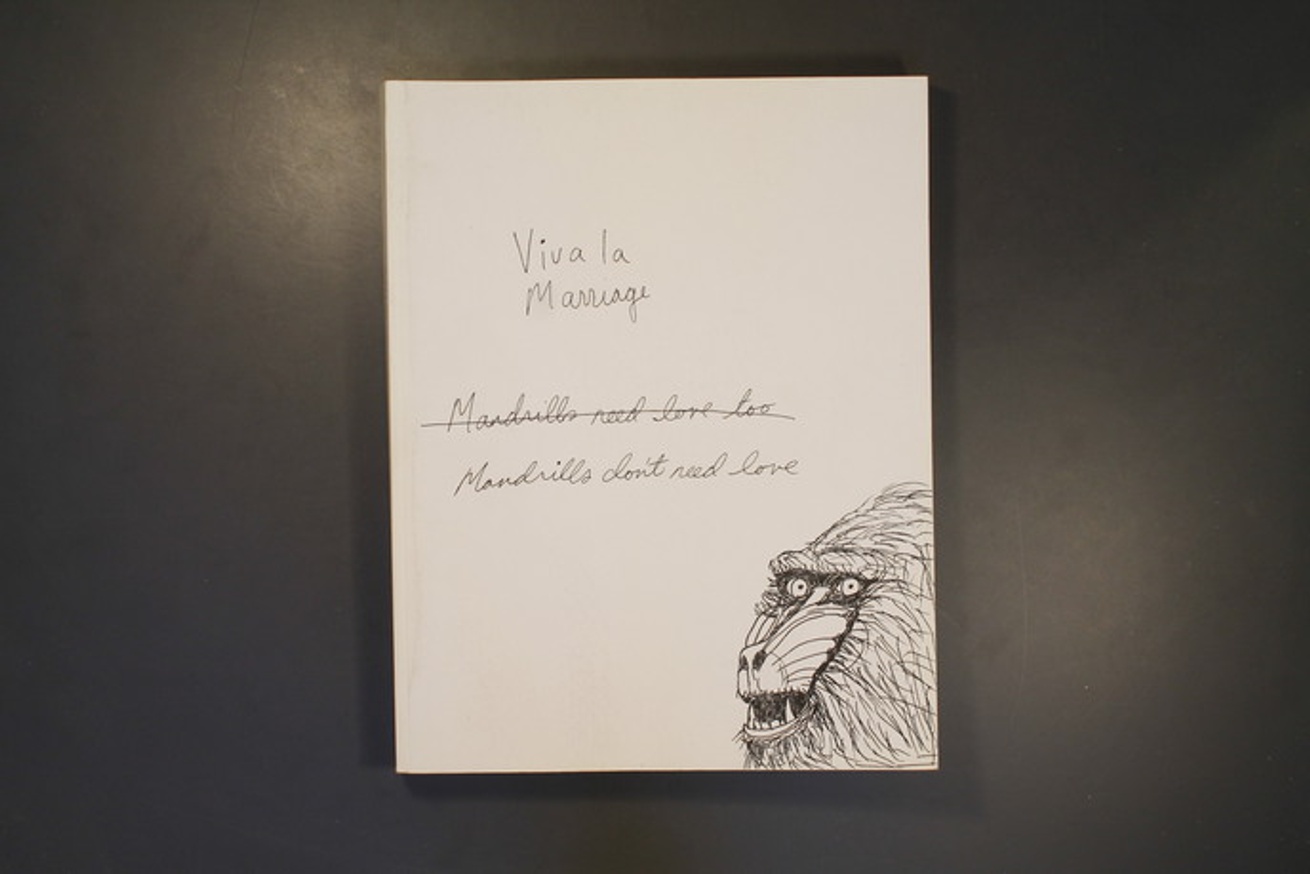 Viva la
Marriage
Mandrills need love too
Mandrills don't need love